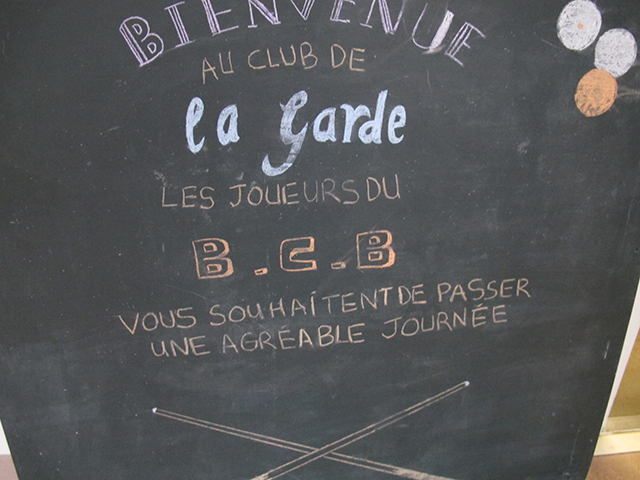 BIENVENUE
AU CLUB DE
La Garde
LES JOUEURS DU
B.C.B
VOUS SOUHAITENT DE PASSER
UNE AGRÉABLE JOURNÉE